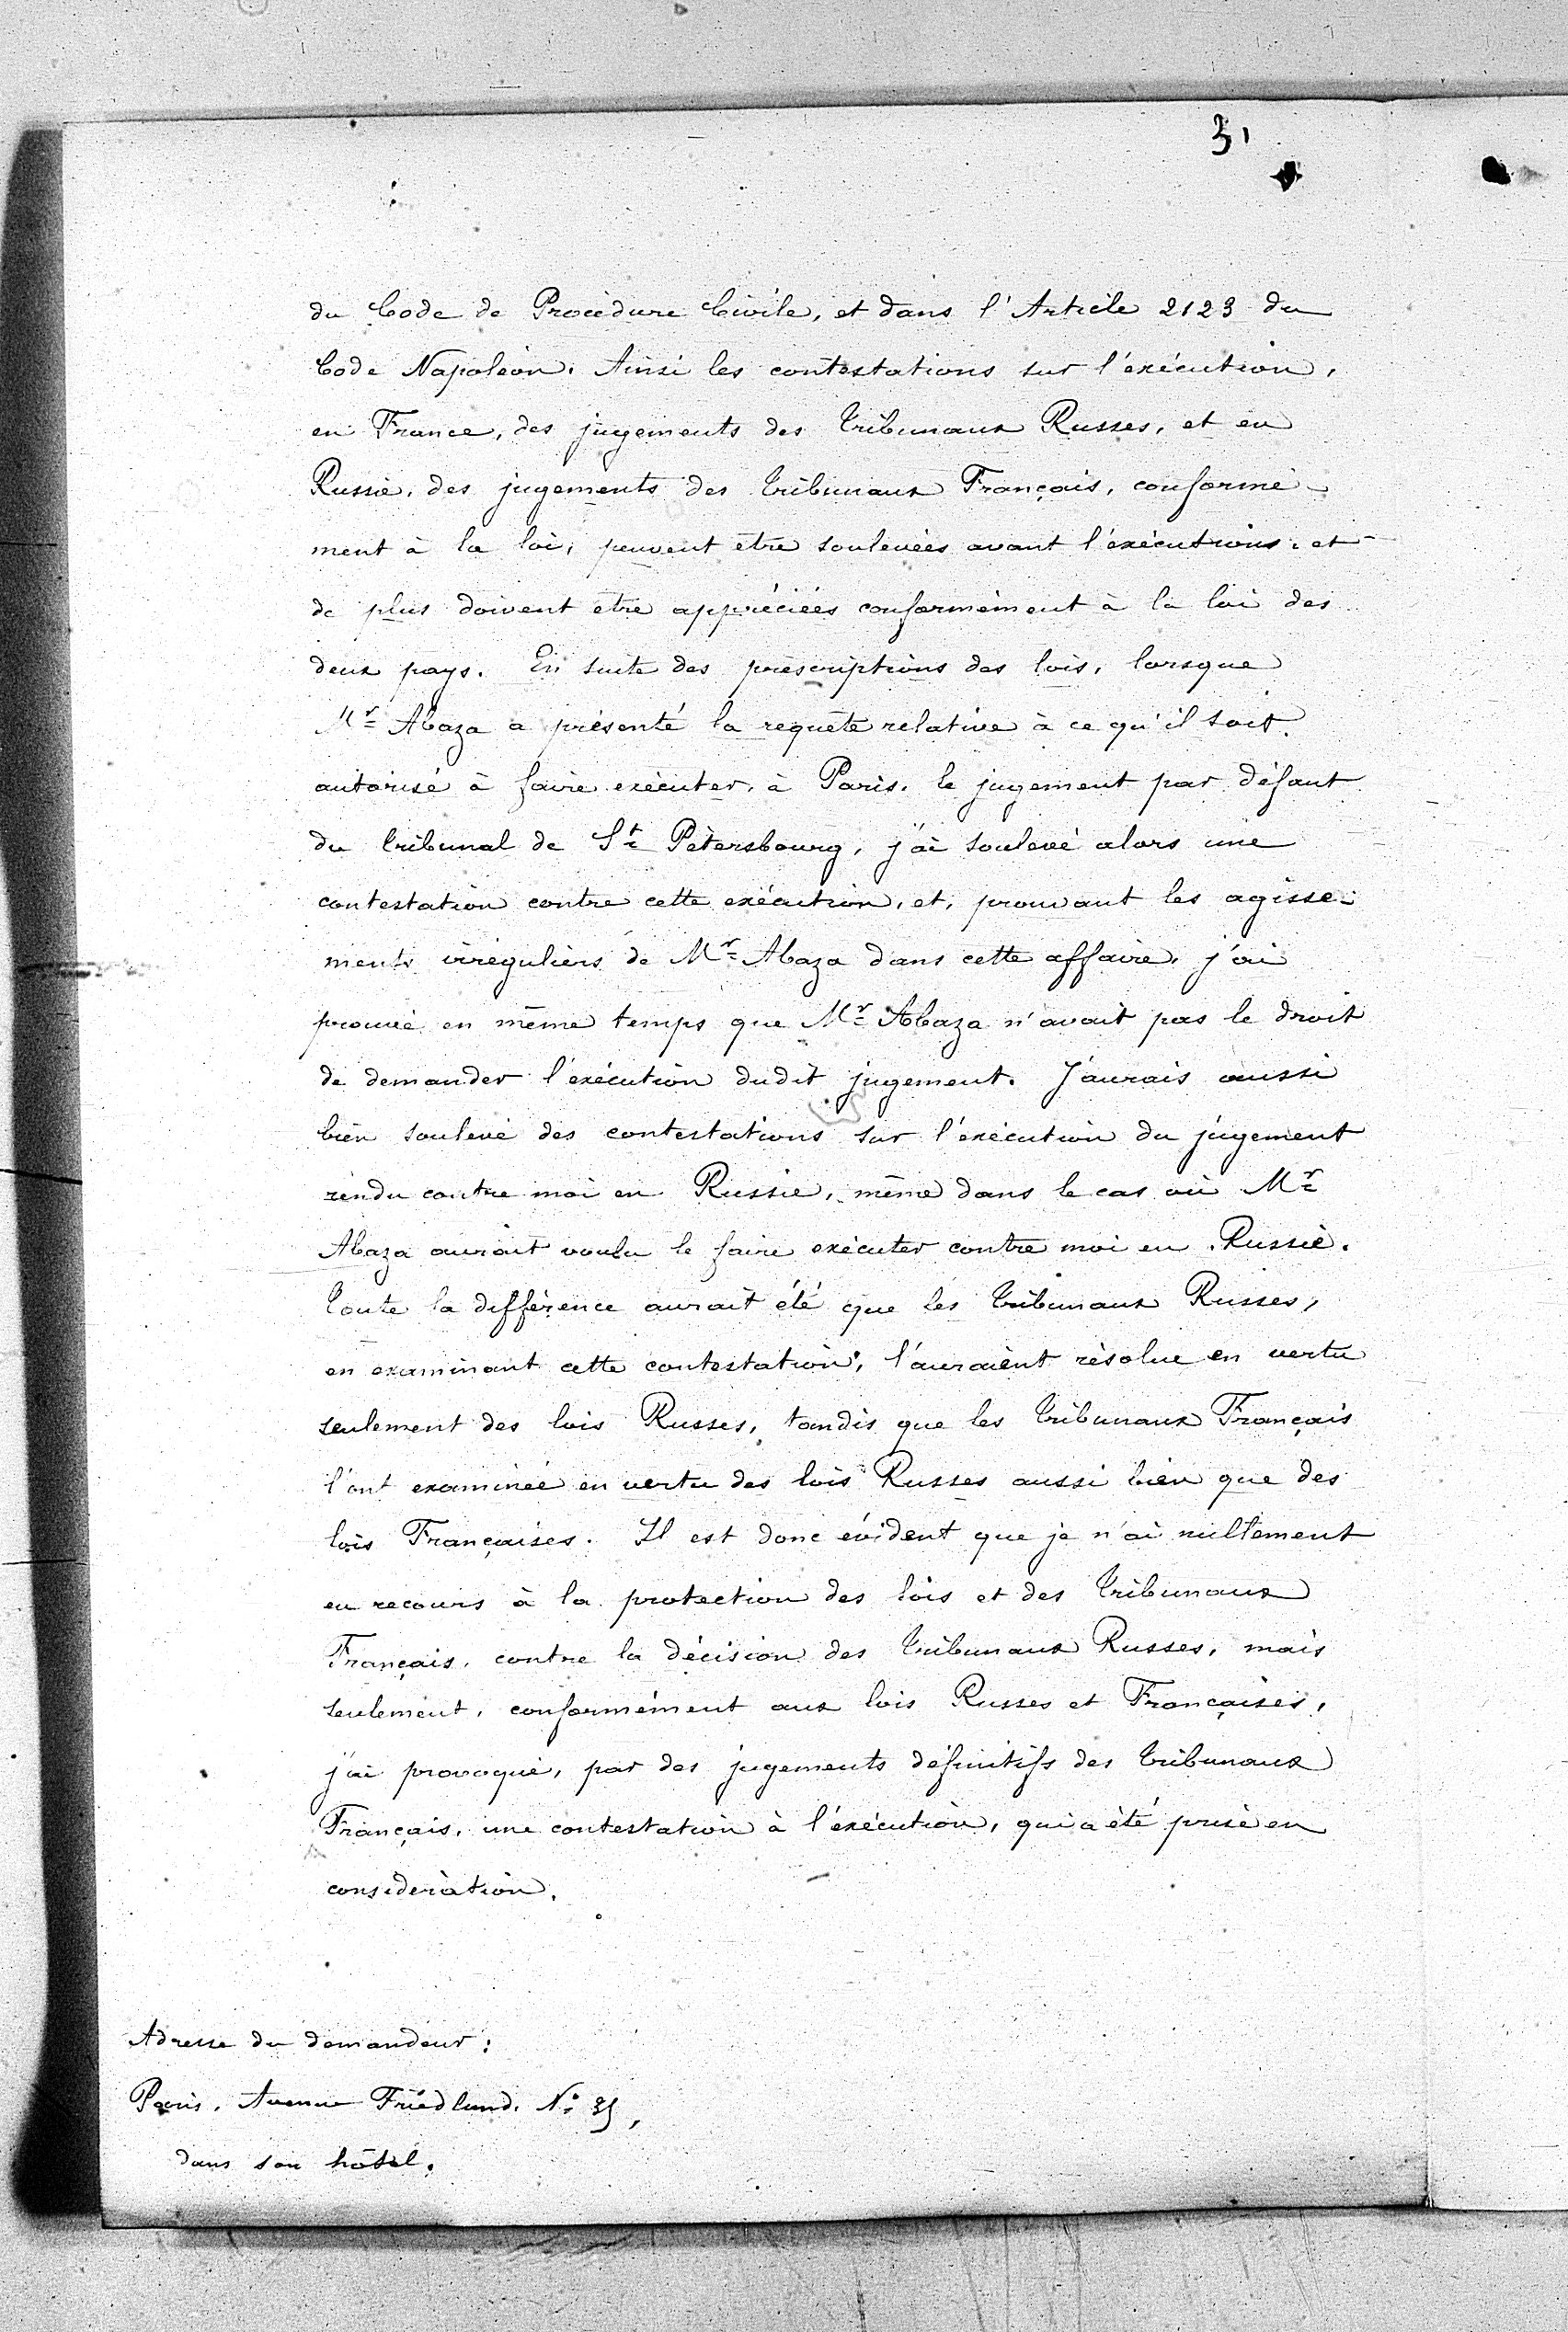 31
du Code de Procédure Civile, et dans l'Article 2123 du
Code Napoléon. Ainsi les contestations sur l'exécution,
en France, des jugements des Tribunaux Russes, et en
Russie, des jugements des Tribunaux Français, conformé-
ment à la loi, peuvent être soulevées avant l'exécution, et
de plus doivent être appréciées conformément à la loi des
deux pays. En suite des prescriptions des lois, lorsque
Mr Abaza a présenté la requête relative à ce qu'il soit
autorisé à faire exécuter, à Paris, le jugement par défaut
du Tribunal de St Pétersbourg, j'ai soulevé alors une
contestation contre cette exécution, et, prouvant les agisse-
ments irréguliers de Mr Abaza dans cette affaire, j'ai
prouvé en même temps que Mr Abaza n'avait pas le droit
de demander l'exécution dudit jugement. J'aurais aussi
bien soulevé des contestations sur l'exécution du jugement
rendu contre moi en Russie, même dans le cas où Mr
Abaza aurait voulu le faire exécuter contre moi en Russie.
Toute la différence aurait été que les Tribunaux Russes,
en examinant cette contestation, l'auraient résolue en vertu
seulement des lois Russes, tandis que les Tribunaux Français
l'ont examinée en vertu des lois Russes aussi bien que des
lois Françaises. Il est donc évident que je n'ai nullement
eu recours à la protection des lois et des Tribunaux
Français, contre la décision des Tribunaux Russes, mais
seulement, conformément aux lois Russes et Françaises,
j'ai provoqué, par des jugements définitifs des Tribunaux
Français, une contestation à l'exécution, qui a été prise en
considération.
Adresse du demandeur:
Paris, Avenue Friedland, No
dans son hôtel.